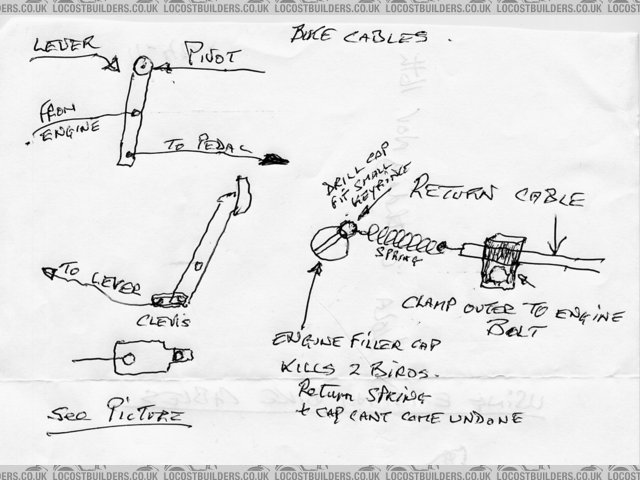 LOCOSTBUILDERS.CO.UK LOCOSTBUILDERS.CO.UK LOCOSTBUILDERS.CO.UK LOCOSTBUILDERS.CO.UK
BIKE CABLES.
LEVER
PIVOT
FROM
ENGINE
TO PEDAL
DRILL CAP
FIT SMALL
KEYRING
RETURN CABLE
SPRING
TO LEVER
CLEVIS
CLAMP OUTER TO ENGINE
BOLT
ENGINE FILLER CAP
KILLS 2 BIRDS.
Return SPRING
+ CAP CANT COME UNDONE
See PICTURE
USING
CABLES
LOCOSTBUILDERS.CO.UK LOCOSTBUILDERS.CO.UK LOCOSTBUILDERS.CO.UK LOCOSTBUILDERS.CO.UK